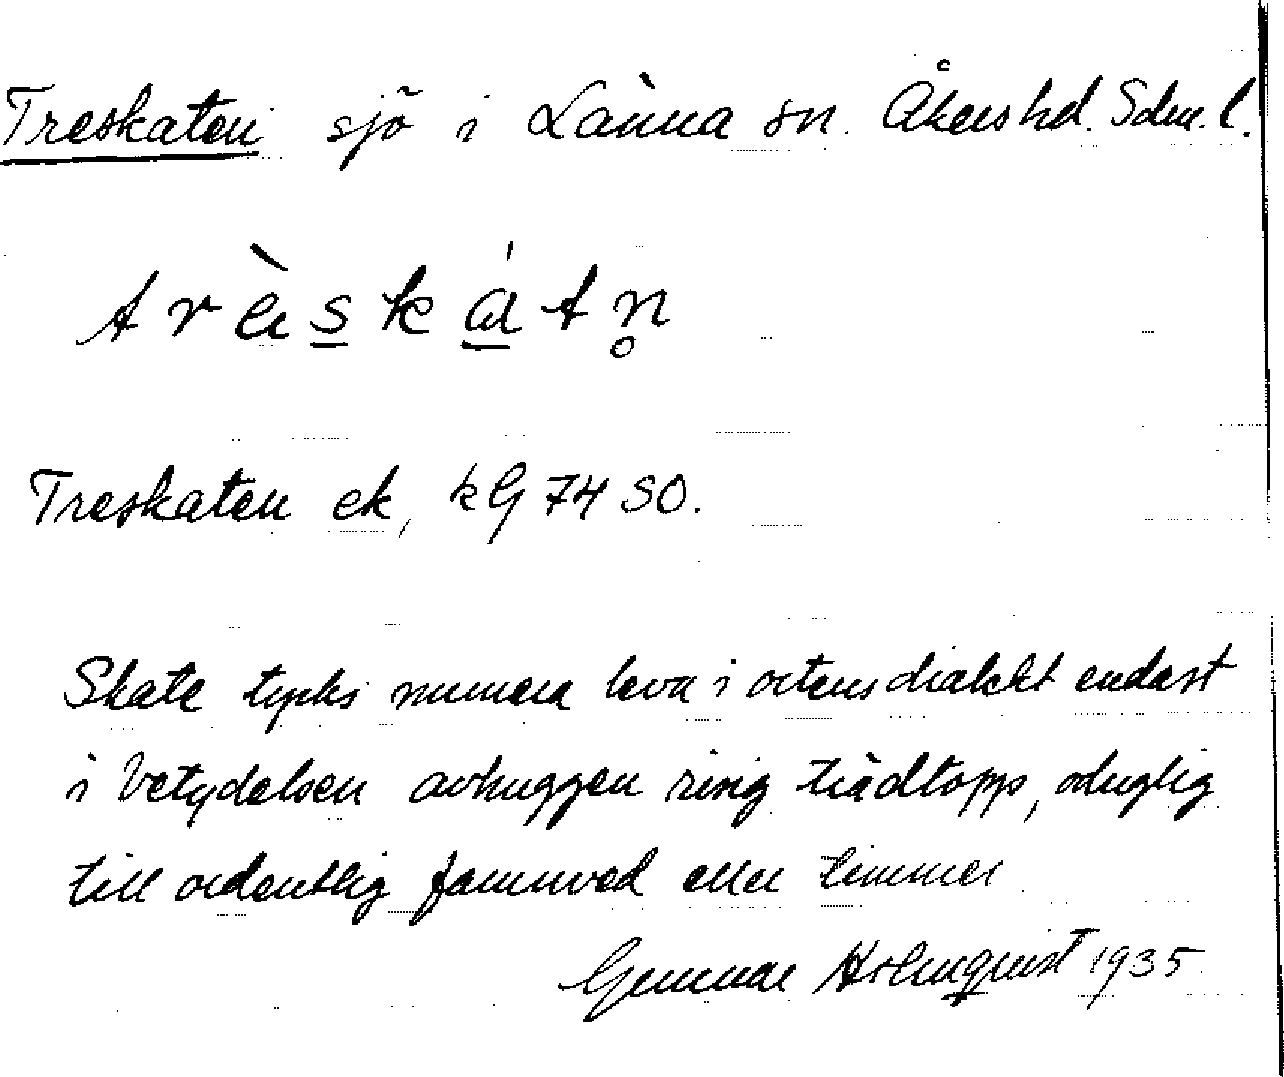 Treskaten sjö i Länna sn. Åkers hd. Sdm. l.
trè̀skátn̥
Treskaten ek, kG 74 SO.
Skate tycks numera leva i ortens dialekt endast
i betydelsen avhuggen risig trädtopp, oduglig
till ordentlig famnved eller timmer
Gunnar Holmquist 1935